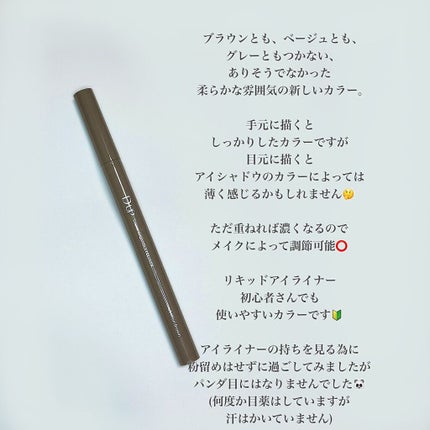 ブラウンとも、ベージュとも、
グレーともつかない、
ありそうでなかった
柔らかな雰囲気の新しいカラー。
手元に描くと
しっかりしたカラーですが
目元に描くと
アイシャドウのカラーによっては
薄く感じるかもしれません🤔
ただ重ねれば濃くなるので
メイクによって調節可能⭕
リキッドアイライナー
初心者さんでも
使いやすいカラーです🔰
アイライナーの持ちを見る為に
粉留めはせずに過ごしてみましたが
パンダ目にはなりませんでした🐼
(何度か目薬はしていますが
汗はかいていません)